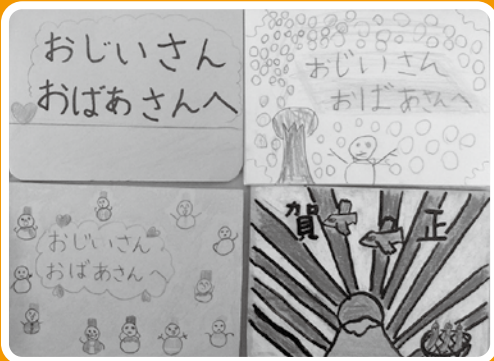 おじいさん
おばあさんへ
おじいさん
おばあさんへ
おじいさん
おばあさんへ
賀正